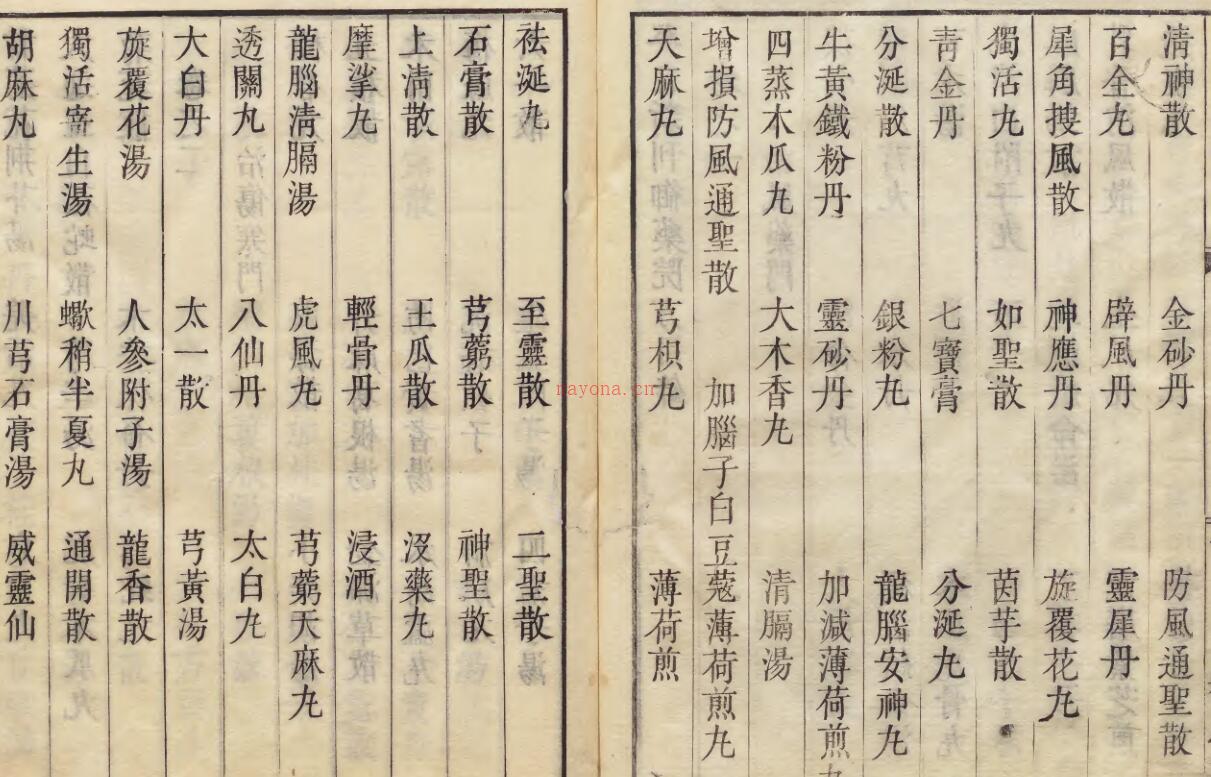 清神散　金砂丹　防風通聖散
百全丸　辟風丹　靈犀丹
犀角搜風散　神應丹　旋覆花丸
獨活丸　如聖散　茵芋散
青金丹　七寶膏　分涎丸
分涎散　銀粉丸　龍腦安神丸
牛黃鐵粉丹　靈砂丹　加減薄荷煎丸
四蒸木瓜丸　大木香丸　清膈湯
增損防風通聖散　加腦子白豆蔻薄荷煎丸
天麻丸　芎枳丸　薄荷煎
祛涎丸　至靈散　二聖散
石膏散　芎藭散　神聖散
上清散　王瓜散　沒藥丸
摩挲丸　輕骨丹　浸酒
龍腦清膈湯　虎風丸　芎藭天麻丸
透關丸　八仙丹　太白丸
大白丹　太一散　芎黃湯
旋覆花湯　人參附子湯　龍香散
獨活寄生湯　蠍稍半夏丸　通開散
胡麻丸　川芎石膏湯　威靈仙
nayona.cn